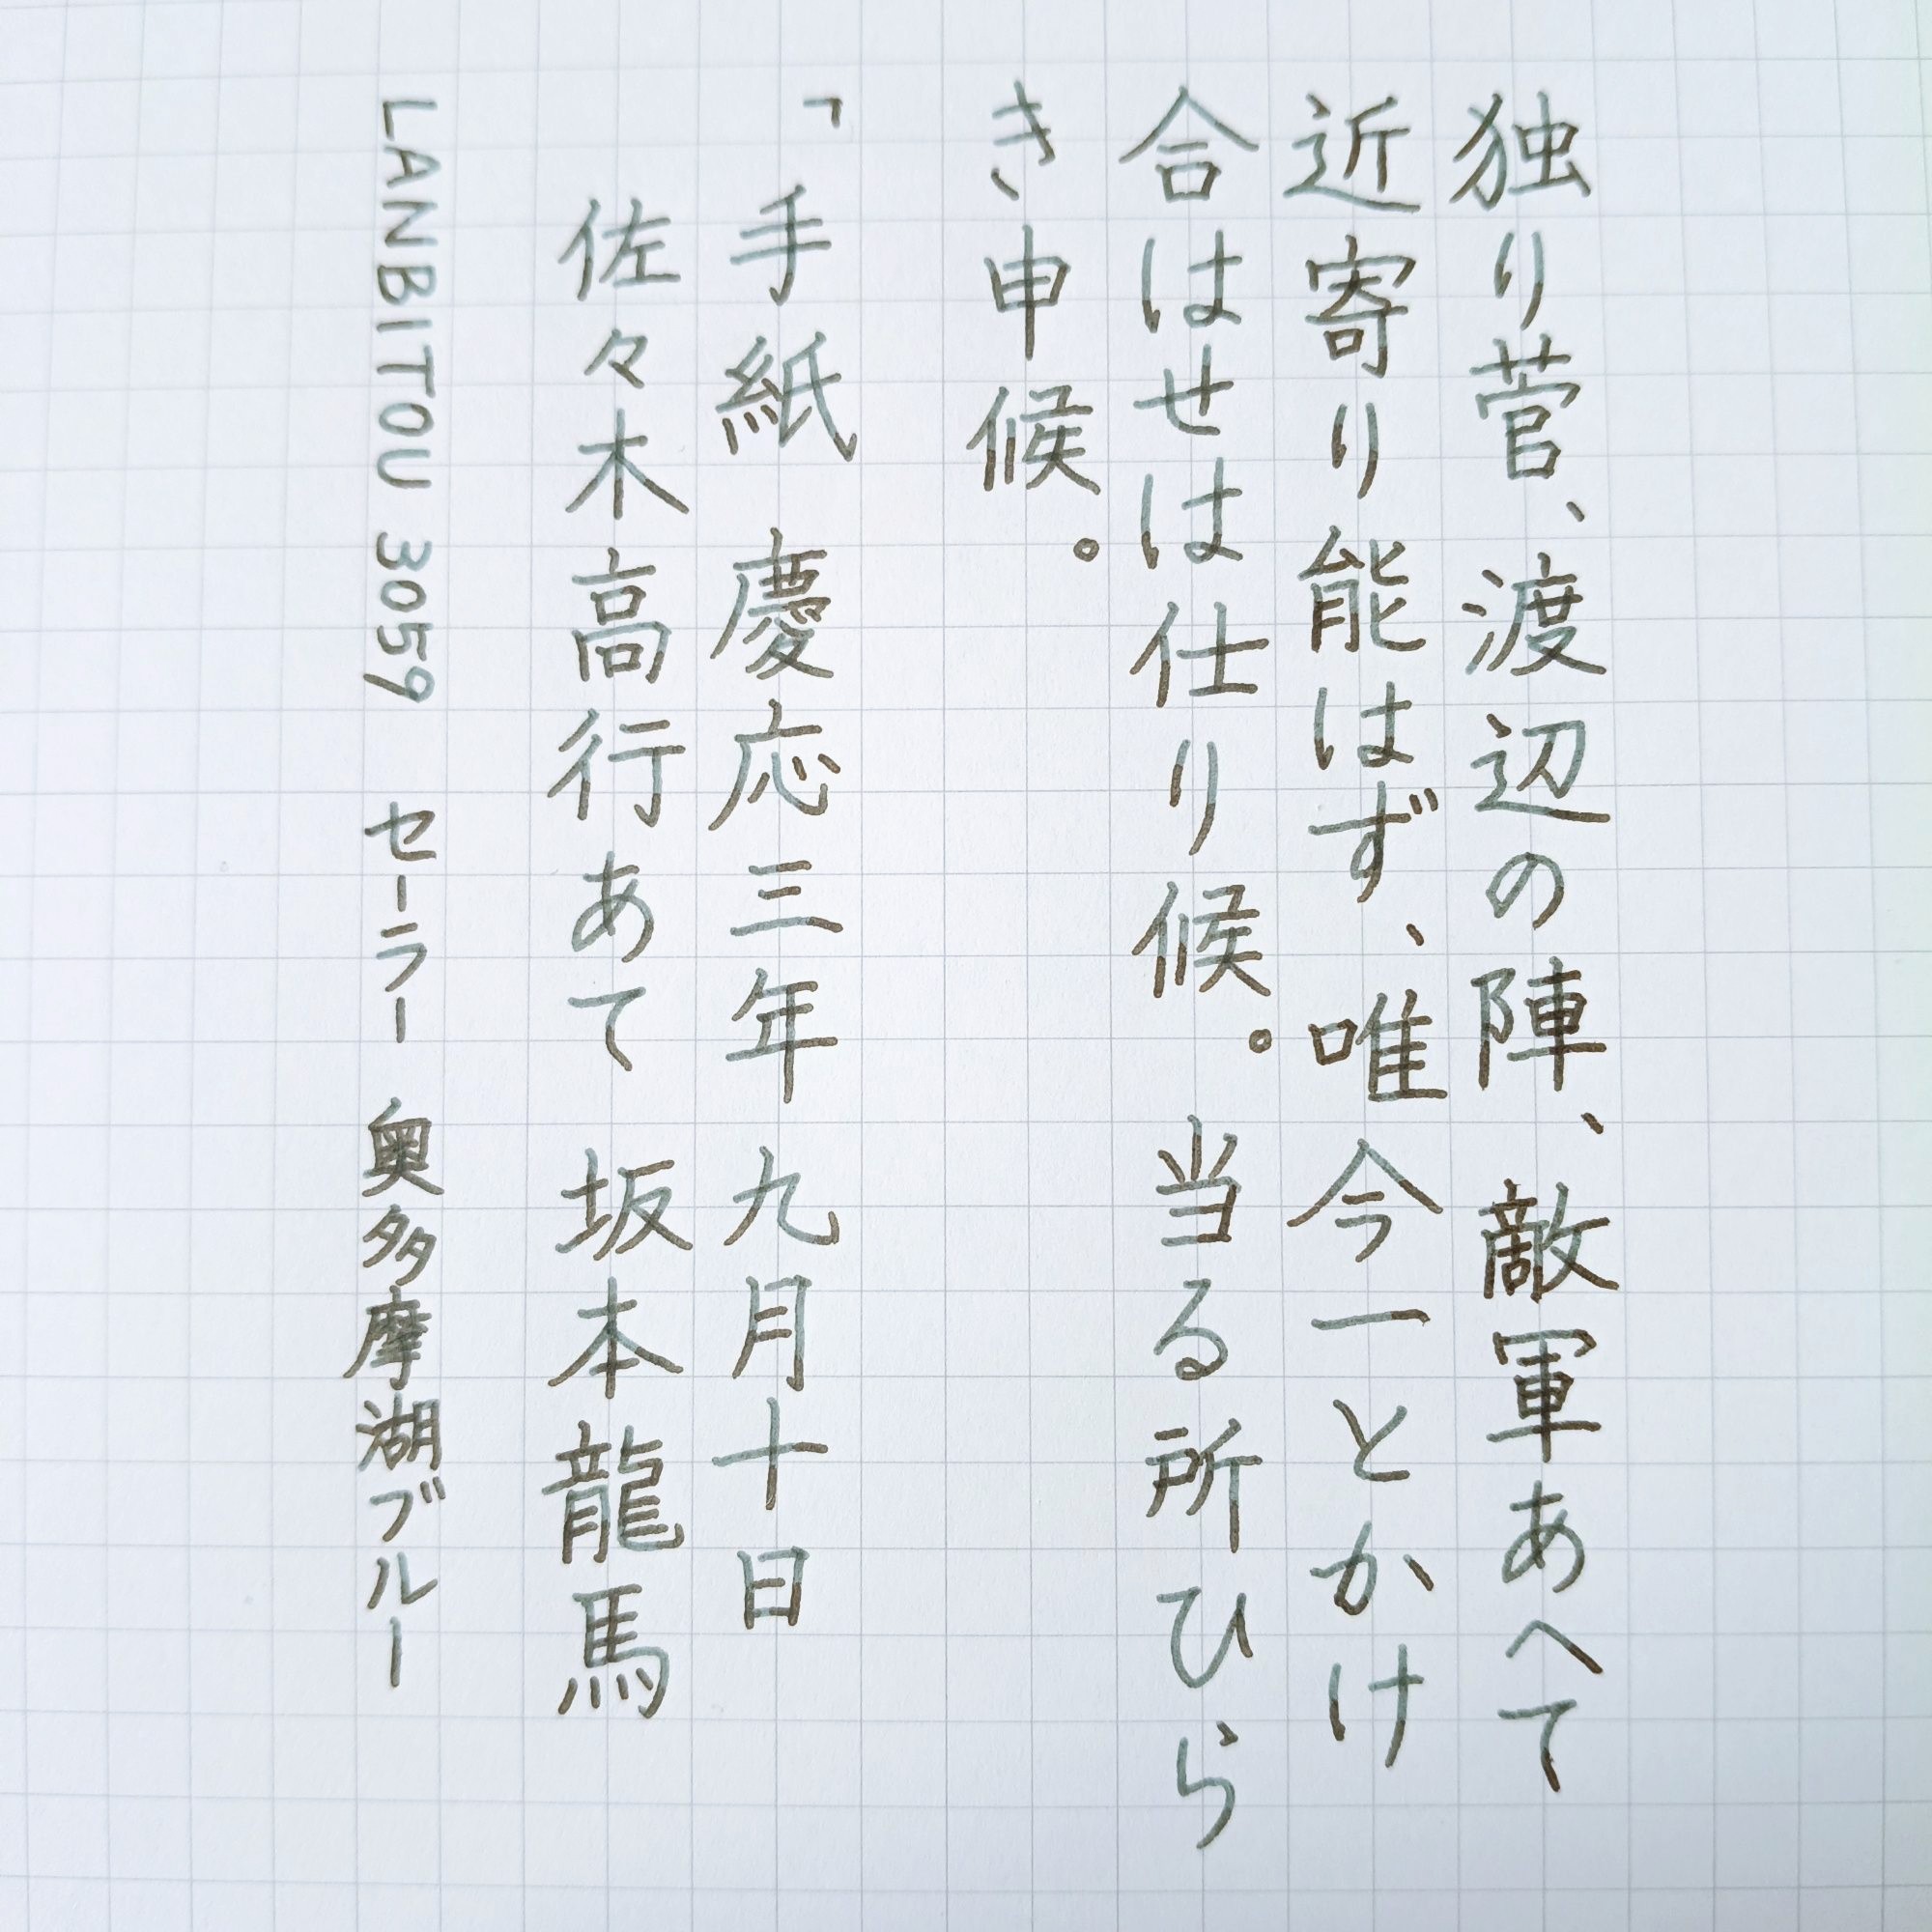 独り菅、渡辺の陣、敵軍あへて
近寄り能はず、唯今一とかけ
合はせは仕り候。当る所ひら
き申候。
「手紙 慶応三年九月十日
佐々木高行あて 坂本龍馬
LANBITOU 3059 セーラー 奥多摩湖ブルー